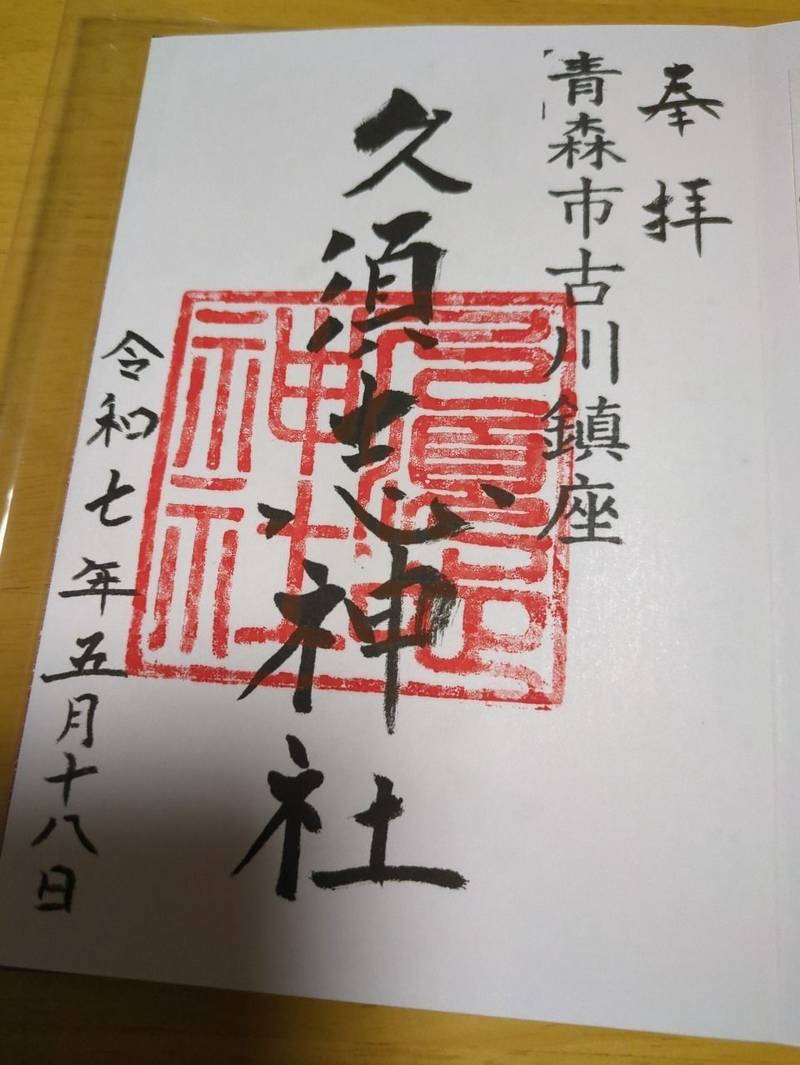 奉拝
青森市古川鎮座
久須志神社
令和七年五月十八日